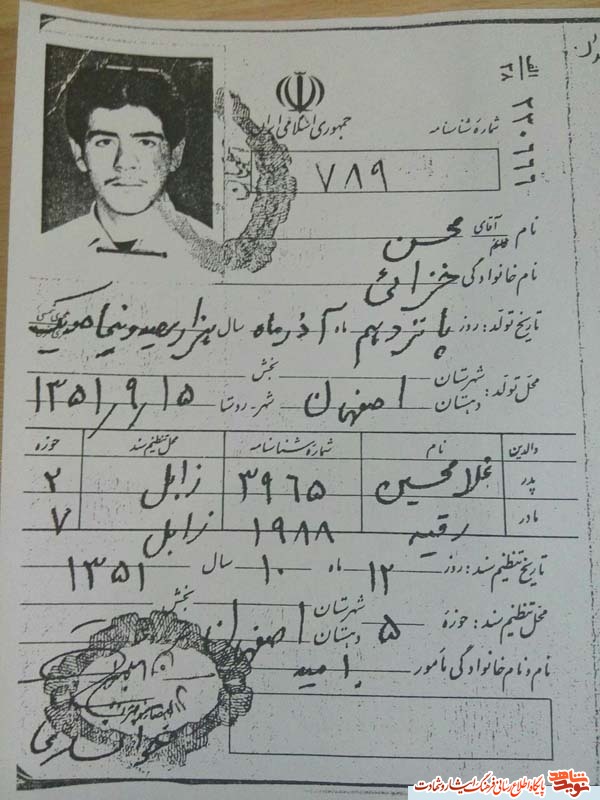 الف
۳۸
۲۲۰۶۶۹
جمهوری اسلامی ایران
شماره شناسنامه
۷۸۹
نام آقای خانم محسن
نام خانوادگی خزائی
تاریخ تولد: روز پانزدهم ماه آذرماه سال هزار سیصد و پنجاه و یک
محل تولد: شهرستان دهستان اصفهان بخش شهر-روستا ۱۳۵۱/۹/۱۵
والدین نام شماره شناسنامه محل تنظیم سند حوزه
پدر غلامحسین ۳۹۶۵ زابل ۲
مادر رقیه ۱۹۸۸ زابل ۷
تاریخ تنظیم سند: روز ۱۲ ماه ۱۰ سال ۱۳۵۱
محل تنظیم سند: حوزه ۵ شهرستان دهستان اصفهان بخش
نام و نام خانوادگی مأمور
نوید شاهد پایگاه اطلاع رسانی فرهنگ ایثار و شهادت